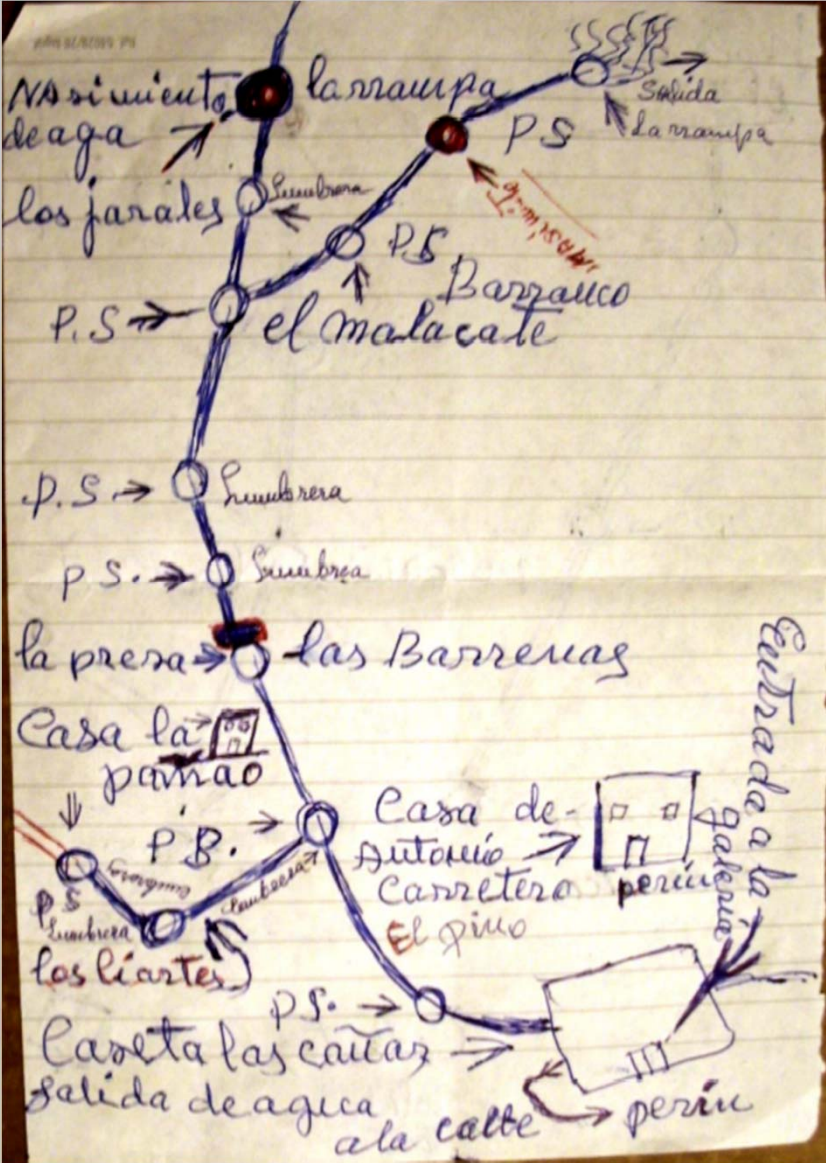 NAsimiento
de aga
larrampa
Salida
Larrampa
P S
los jarales
Lumbrera
P.S
Barranco
P.S
el malacate
P.S.
Lumbrera
P S.
Lumbrea
la presa
las Barrenas
Casa la
pamao
P.B.
Casa de
Antonio
Carretero
perin
El pino
Entrada a la
galeria
P S
Lumbrera
Lumbrera
los liartes
P.S.
Caseta las cañas
salida de agua
a la calle
perin